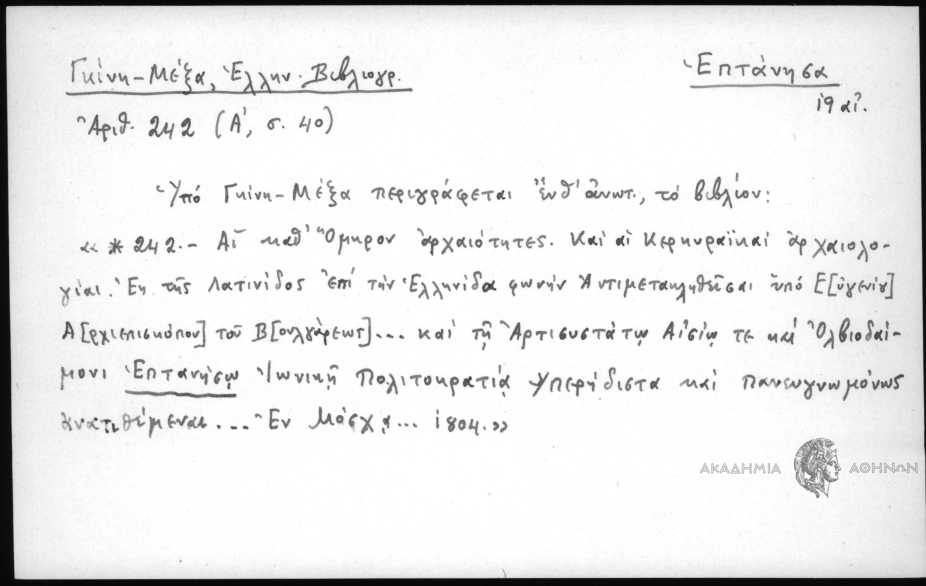 Γκίνη-Μέξα, Ἑλλην. Βιβλιογρ.
Ἑπτάνησα
19 αἰ.
Ἀριθ. 242 (Α', σ. 40)
Ὑπό Γκίνη-Μέξα περιγράφεται ἔνθ' ἀνωτ., τό βιβλίον:
«*242.- Αἱ καθ' Ὅμηρον ἀρχαιότητες. Καί αἱ Κερκυραϊκαί ἀρχαιολο-
γίαι. Ἐκ τῆς Λατινίδος ἐπί τήν Ἑλληνίδα φωνήν Ἀντιμετακληθεῖσαι ὑπό Ε[ὐγενίου]
Α[ρχιεπισκόπου] τοῦ Β[ουλγάρεως]... καί τῇ Ἀρτισυστάτῳ Αἰσίῳ τε καί Ὀλβιοδαί-
μονι Ἑπτανήσῳ Ἰωνικῇ Πολιτοκρατίᾳ Ὑπερήδιστα καί πανευγνωμόνως
ἀνατιθέμεναι... Ἐν Μόσχᾳ... 1804.»
ΑΚΑΔΗΜΙΑ ΑΘΗΝΩΝ